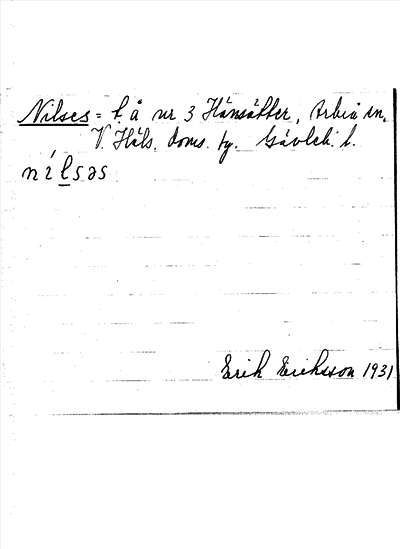 Nilses = t. å nr 3 Hånsätter, Arbrå sn,
V. Häls. doms. fg. Gävleb. l.
nílsəs
Erik Eriksson 1931